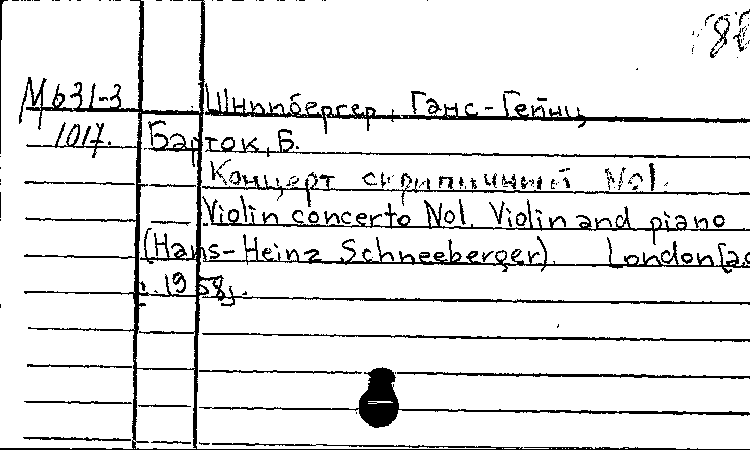 М631-3 Шнеебергер, Ганс-Гейнц
1017. Барток, Б.
Концерт скрипичный №1.
Violin concerto No1. Violin and piano
(Hans-Heinz Schneeberger). London [a.o
1958].